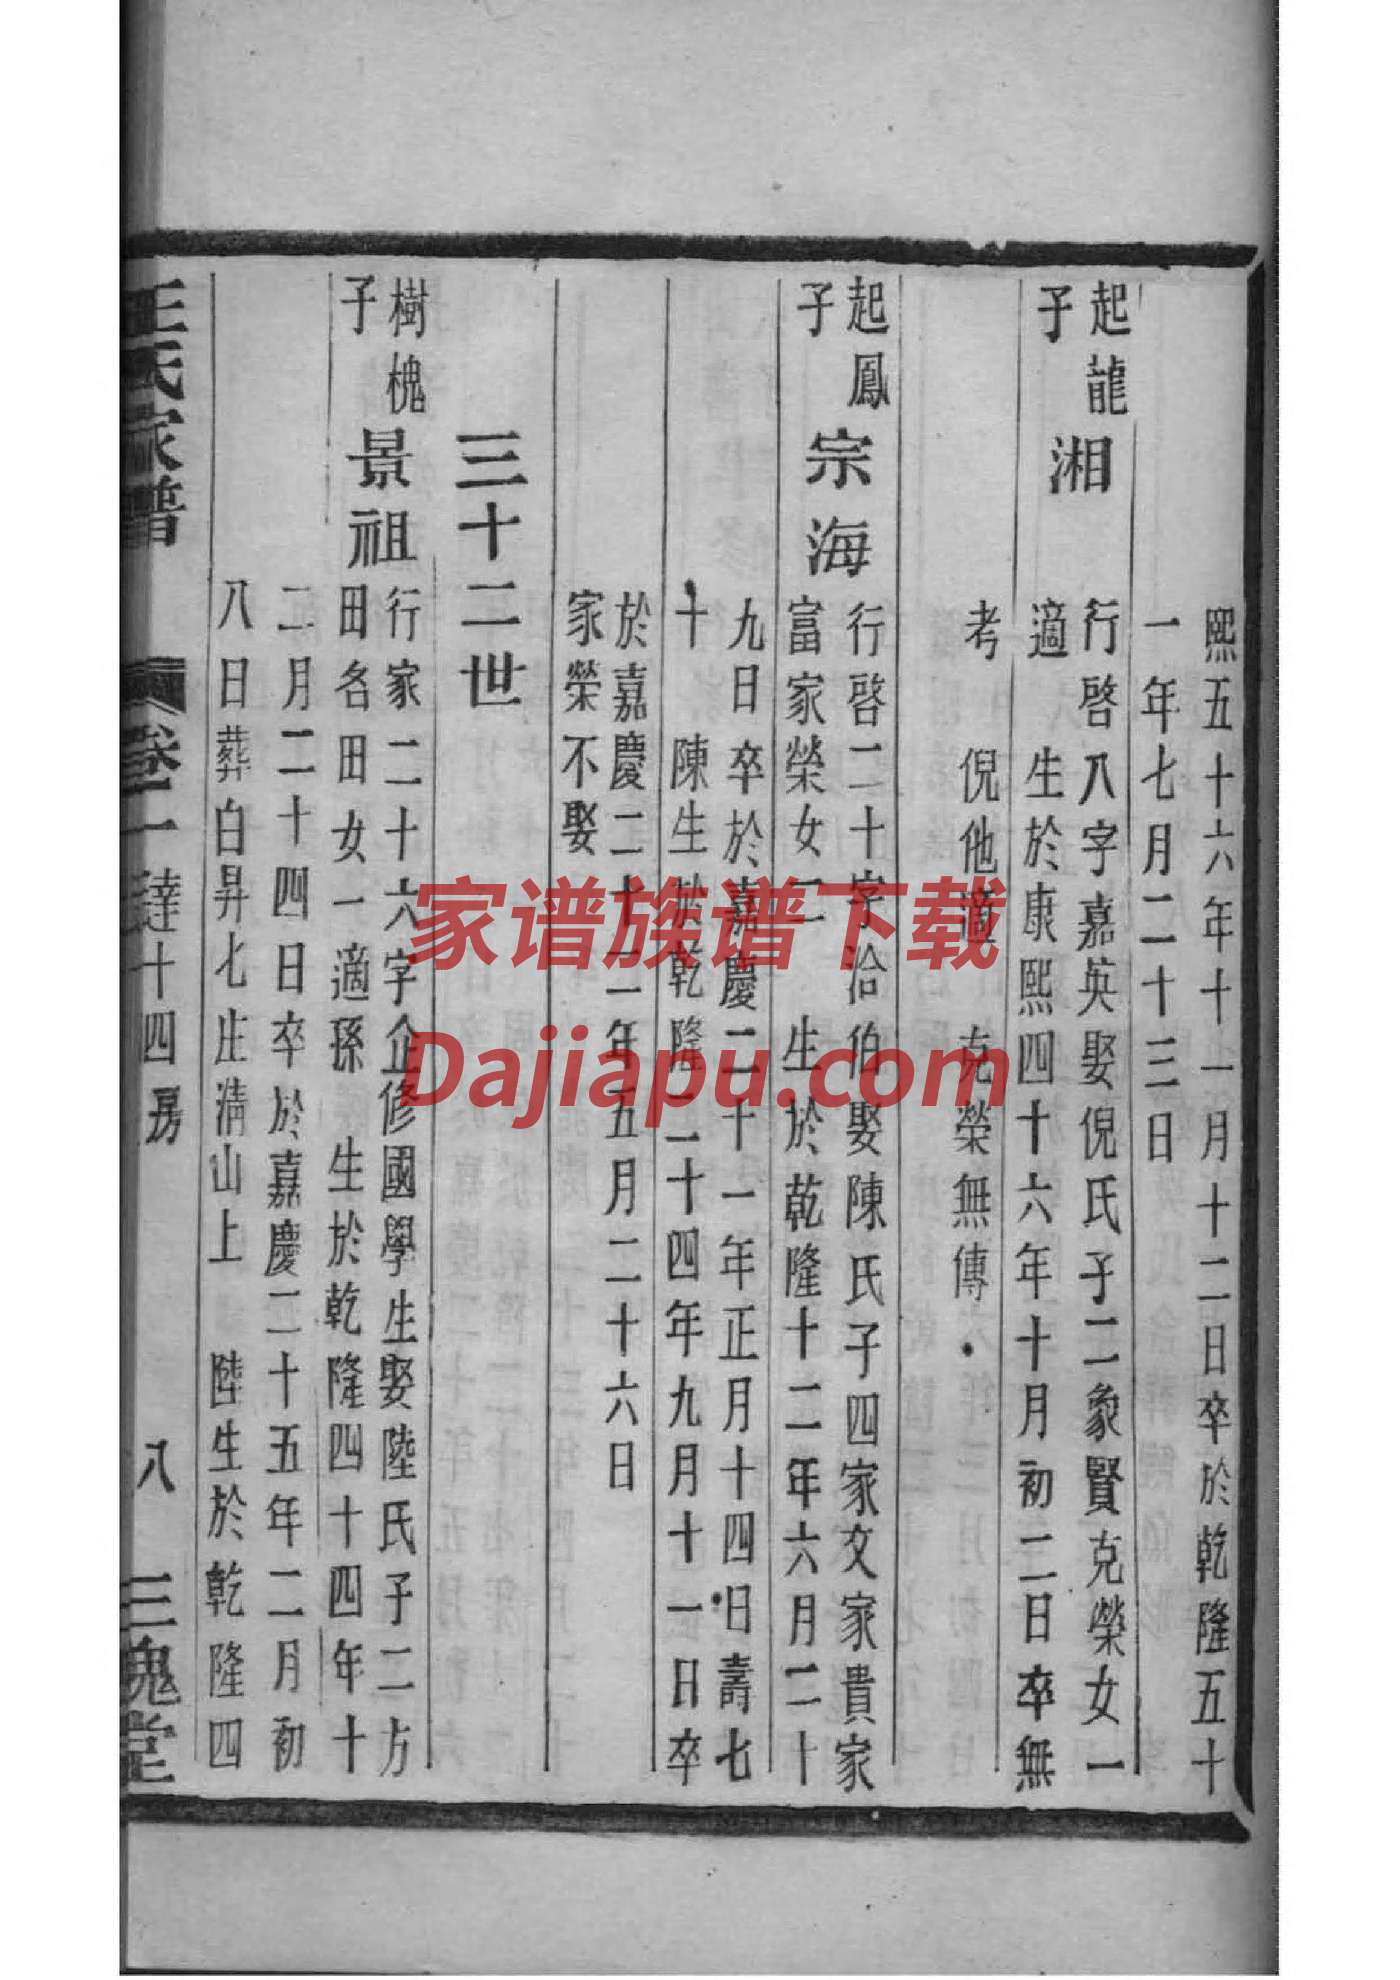 熙五十六年十一月十二日卒於乾隆五十
一年七月二十三日
起龍
子
湘
行啓八字嘉英娶倪氏子二象賢克榮女一
適　生於康熙四十六年十月初二日卒無
考　倪他適　克榮無傳
起鳳
子
宗海
行啓二十字洽伯娶陳氏子四家文家貴家
富家榮女二　生於乾隆十二年六月二十
九日卒於嘉慶二十一年正月十四日壽七
十　陳生於乾隆二十四年九月十一日卒
於嘉慶二十二年五月二十六日
家榮不娶
三十二世
樹槐
子
景祖
行家二十六字企修國學生娶陸氏子二方
田名田女一適孫　生於乾隆四十四年十
二月二十四日卒於嘉慶二十五年二月初
八日葬白昇七庄淸山上　陸生於乾隆四
王氏家譜
卷一
十四房
八
三槐堂
家谱族谱下载
Dajiapu.com